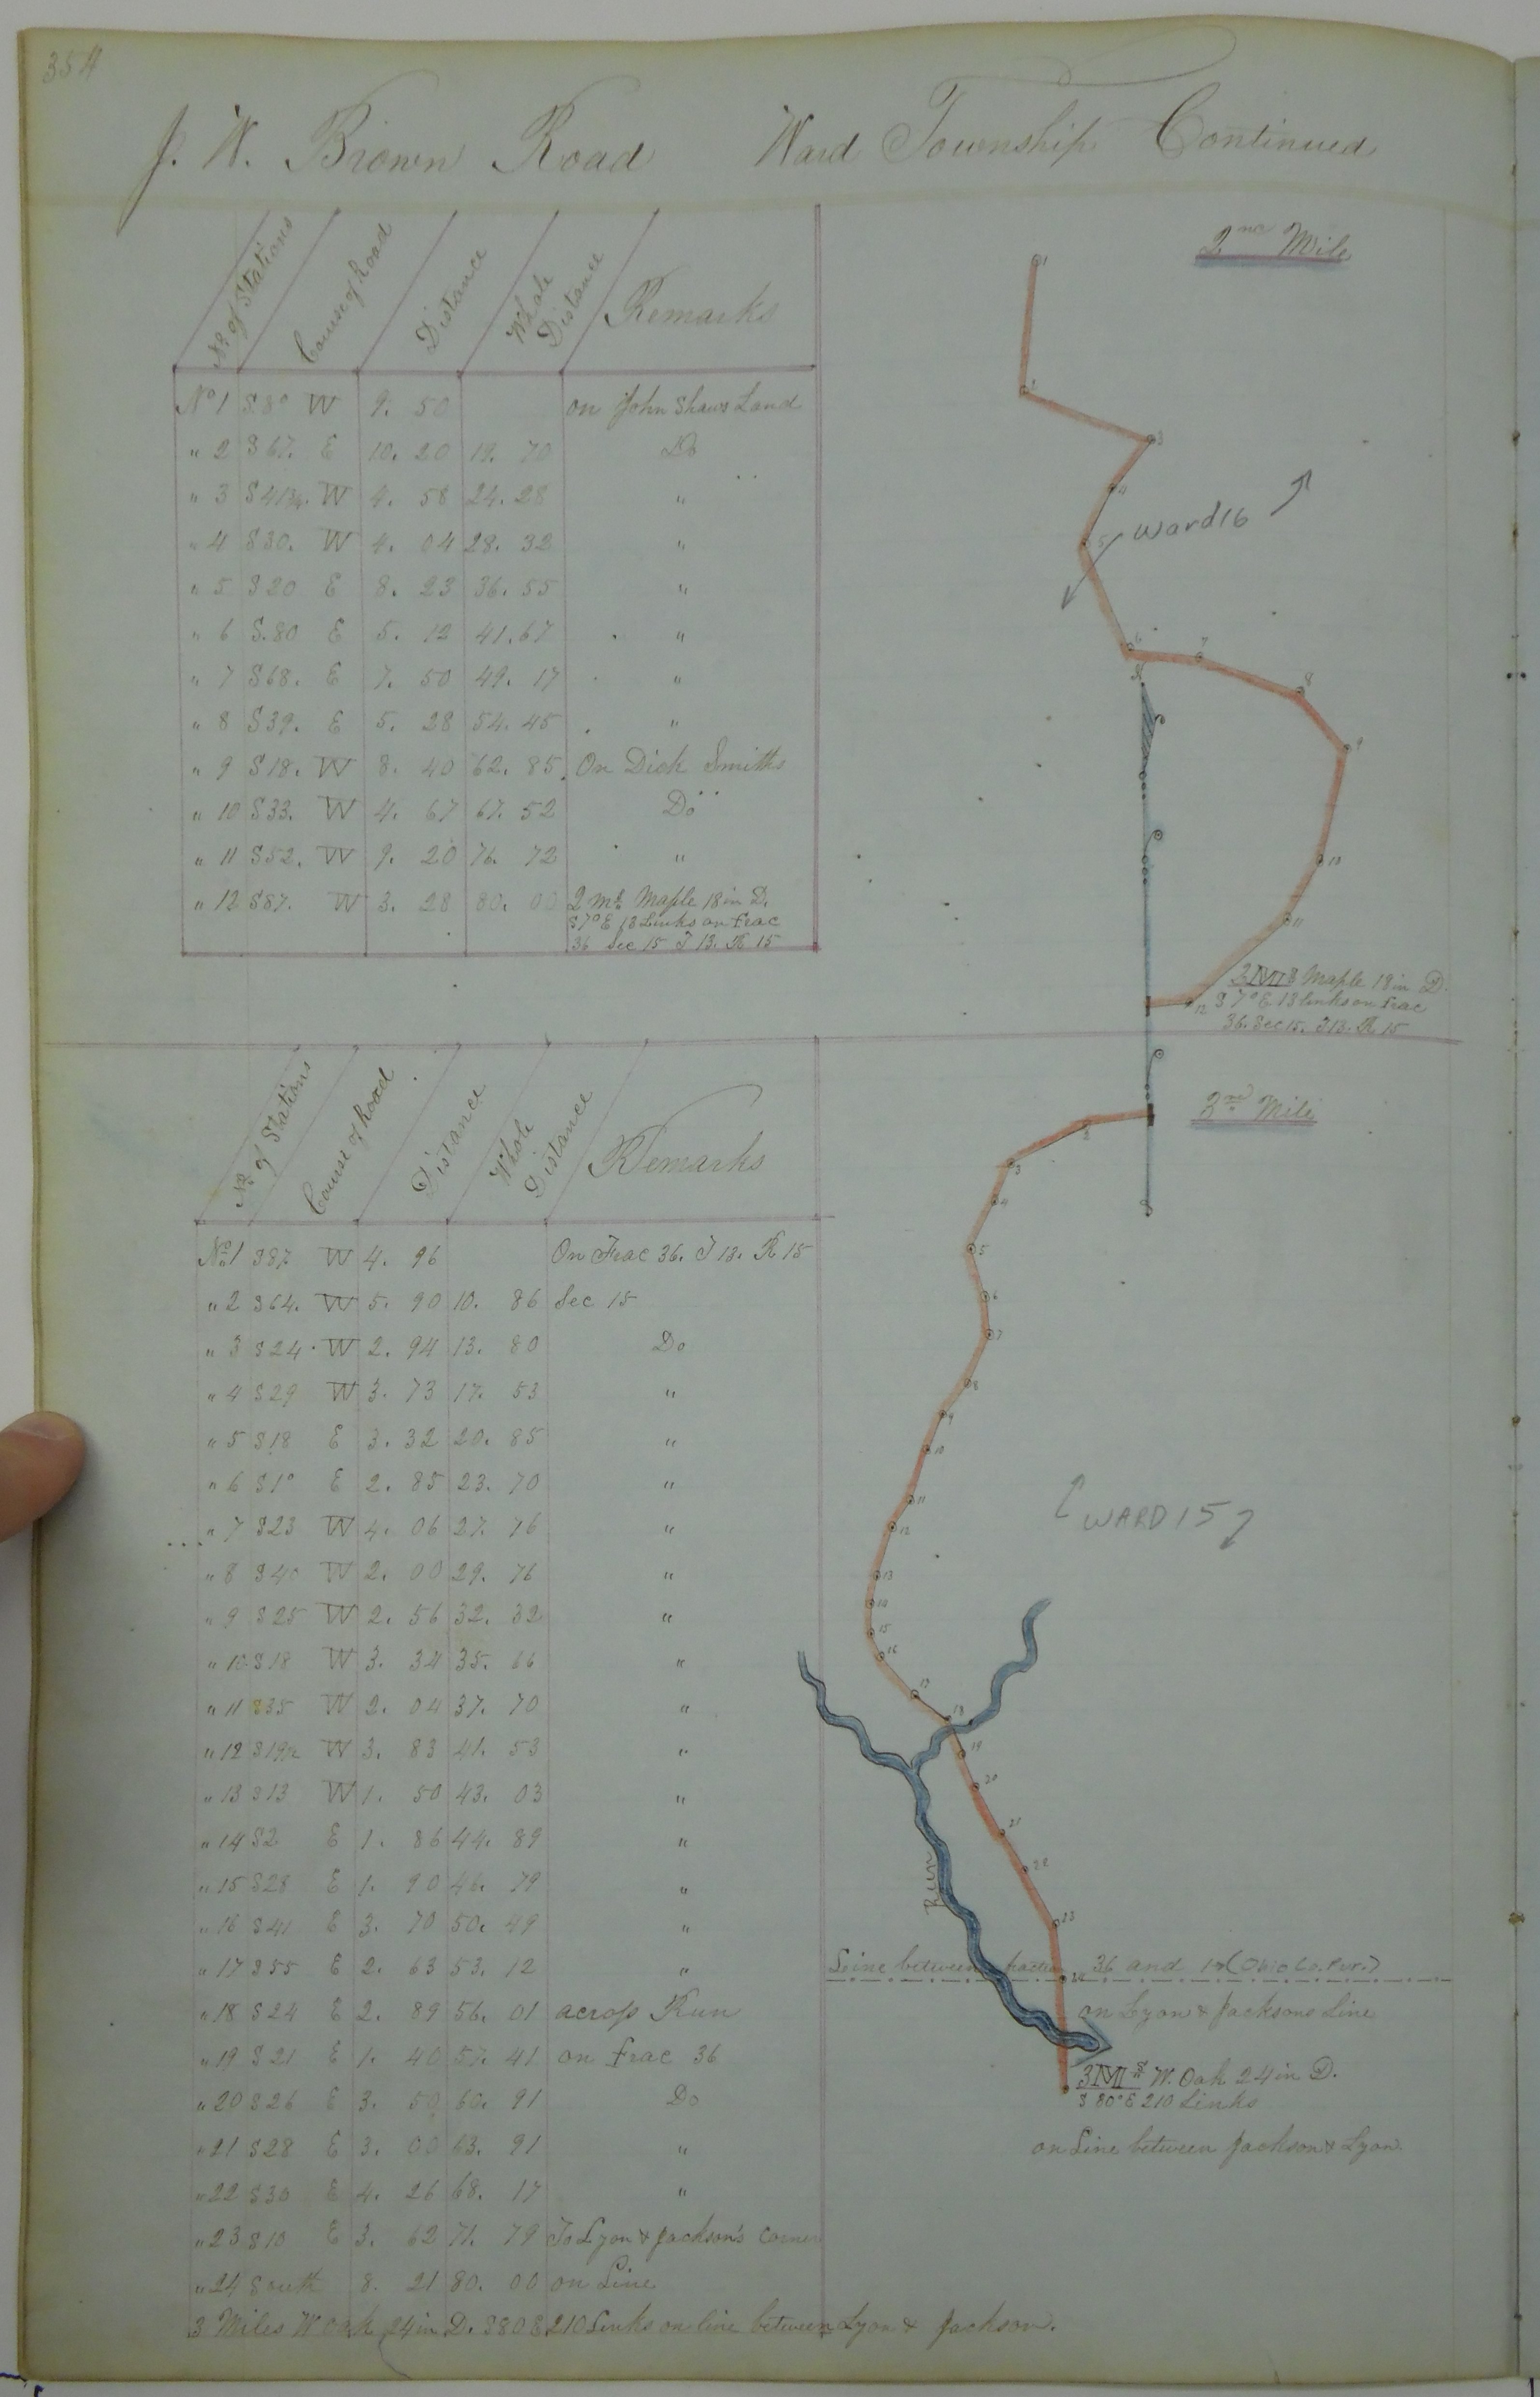 354
J. W. Brown Road Ward Township Continued
No. of Stations Course of Road Distance Whole Distance Remarks
No 1 S.8° W 9. 50 on John Shaws Land
" 2 S 67. E 10. 20 19. 70 Do
" 3 S 41¾. W 4. 58 24. 28 "
" 4 S30. W 4. 04 28. 32 "
" 5 S20 E 8. 23 36. 55 "
" 6 S.80 E 5. 12 41.67 "
" 7 S68. E 7. 50 49. 17 "
" 8 S39. E 5. 28 54. 45 "
" 9 S18. W 8. 40 62. 85 On Dick Smiths
" 10 S33. W 4. 67 67. 52 Do
" 11 S52. W 9. 20 76. 72 "
" 12 S87. W 3. 28 80. 00 2 ms. Maple 18 in D.
S 7° E 13 Links on Frac
36 Sec 15 T 13. R 15
2nd Mile
1
2
3
4
5
Ward 16
6 7
8
9
10
11
12
2 MIs Maple 18 in D.
S 7° E 13 links on Frac
36. Sec 15. T13. R 15
No. of Stations Course of Road Distance Whole Distance Remarks
No 1 S87. W 4. 96 On Frac 36. T 13. R 15
" 2 S64. W 5. 90 10. 86 Sec 15
" 3 S24. W 2. 94 13. 80 Do
" 4 S29 W 3. 73 17. 53 "
" 5 S18 E 3. 32 20. 85 "
" 6 S1° E 2. 85 23. 70 "
" 7 S23 W 4. 06 27. 76 "
" 8 S40 W 2. 00 29. 76 "
" 9 S25 W 2. 56 32. 32 "
" 10 S18 W 3. 34 35. 66 "
" 11 S35 W 2. 04 37. 70 "
" 12 S19½ W 3. 83 41. 53 "
" 13 S13 W 1. 50 43. 03 "
" 14 S2 E 1. 86 44. 89 "
" 15 S28 E 1. 90 46. 79 "
" 16 S41 E 3. 70 50. 49 "
" 17 S55 E 2. 63 53. 12 "
" 18 S24 E 2. 89 56. 01 across Run
" 19 S21 E 1. 40 57. 41 on Frac 36
" 20 S26 E 3. 50 60. 91 Do
" 21 S28 E 3. 00 63. 91 "
" 22 S30 E 4. 26 68. 17 "
" 23 S10 E 3. 62 71. 79 To Lyon & Jackson's Corner
" 24 South 8. 21 80. 00 on Line
3 Miles W Oak 24 in D. S80 E 210 Links on line between Lyon & Jackson.
3rd Mile
2
3
4
5
6
7
8
9
10
11
12
13
14
15
16
17
18
19
20
21
22
23
24
WARD 15
Run
Line between fraction 36 and (Ohio Co. Pur.)
on Lyon & Jacksons Line
3 MIs W. Oak 24 in D.
S 80° E 210 Links
on Line between Jackson & Lyon.